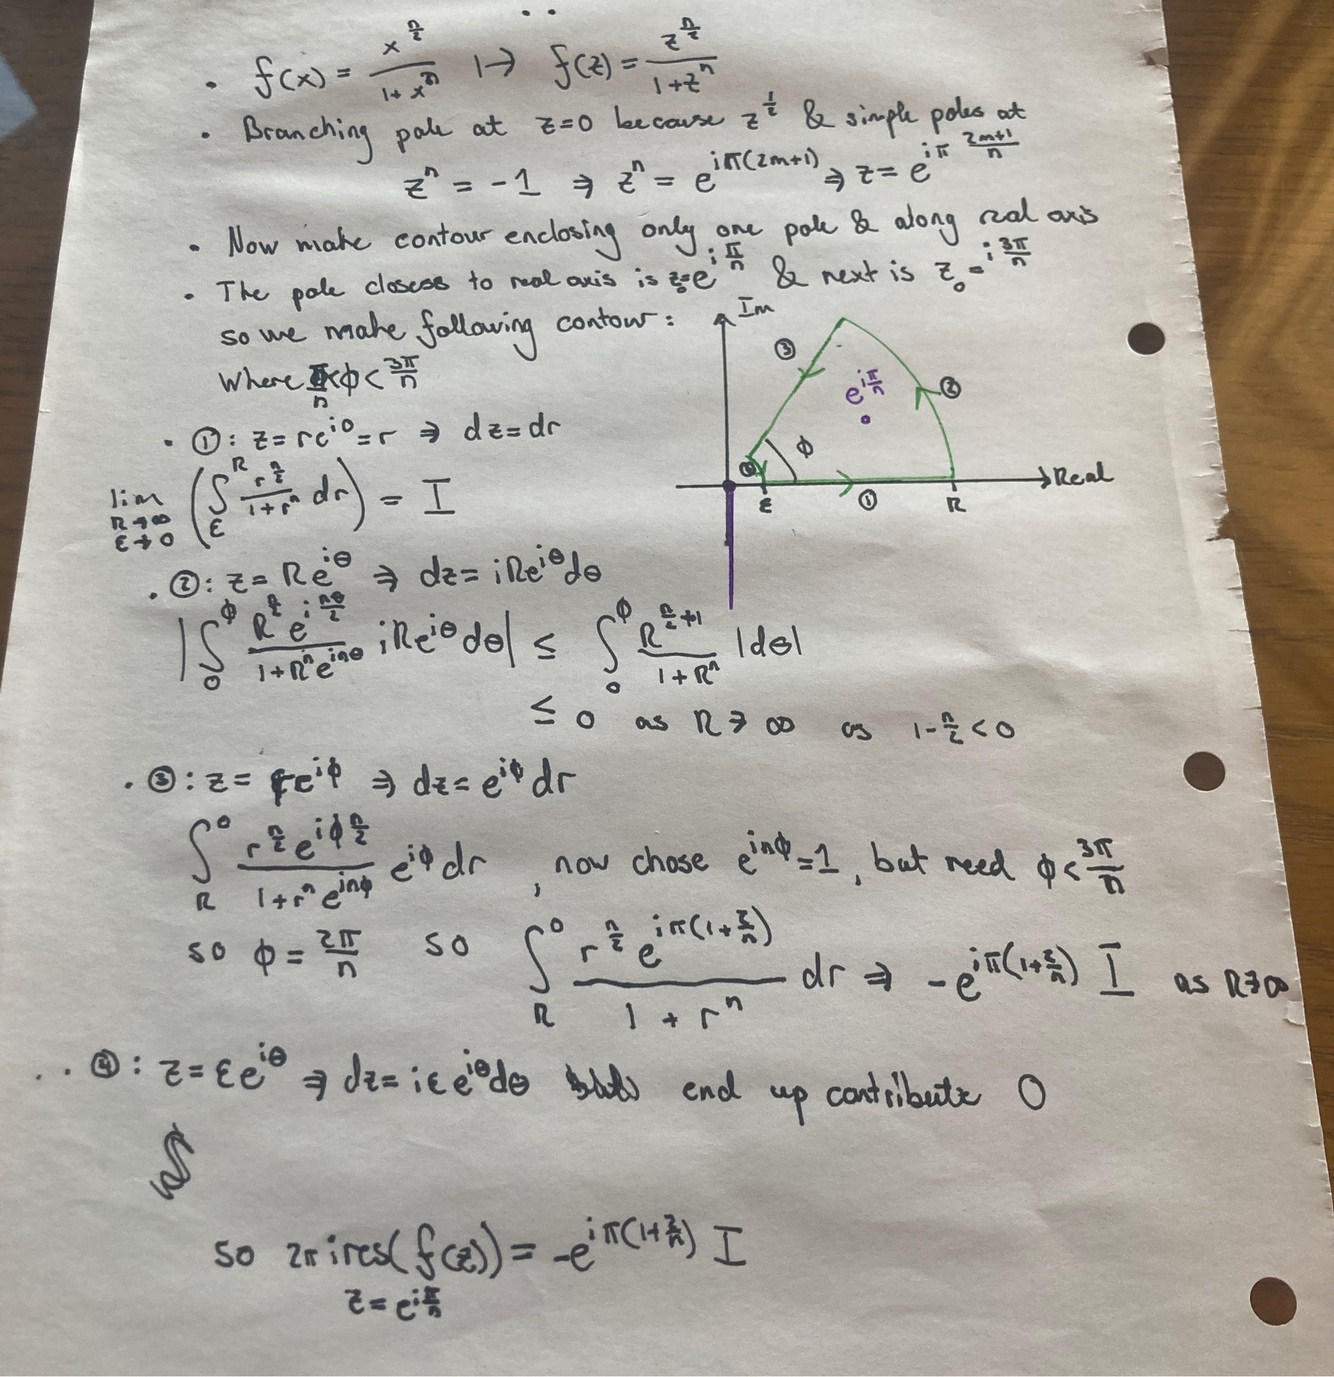 • f(x) = x^{n/2} / (1 + x^n) ↦ f(z) = z^{n/2} / (1 + z^n)
• Branching pole at z=0 because z^{1/2} & simple poles at
z^n = -1 ⇒ z^n = e^{iπ(2m+1)} ⇒ z = e^{iπ (2m+1)/n}
• Now make contour enclosing only one pole & along real axis
• The pole closess to real axis is z_0 = e^{iπ/n} & next is z_0 = i^{3π/n}
so we make following contour:
Where π/n < ϕ < 3π/n
Im
③
e^{iπ/n}
②
ϕ
④
Real
ε
①
R
• ①: z = re^{i0} = r ⇒ dz = dr
lim_{R→∞, ε→0} ( ∫_ε^R r^{n/2} / (1 + r^n) dr ) = I
• ②: z = Re^{iθ} ⇒ dz = iRe^{iθ}dθ
| ∫_0^ϕ R^{n/2} e^{i nθ/2} / (1 + R^n e^{inθ}) iRe^{iθ}dθ | ≤ ∫_0^ϕ R^{n/2+1} / (1 + R^n) |dθ|
≤ 0 as R → ∞ as 1 - n/2 < 0
• ③: z = re^{iϕ} ⇒ dz = e^{iϕ} dr
∫_R^0 r^{n/2} e^{iϕ n/2} / (1 + r^n e^{inϕ}) e^{iϕ} dr , now chose e^{inϕ} = 1, but need ϕ < 3π/n
so ϕ = 2π/n so ∫_R^0 r^{n/2} e^{iπ(1+2/n)} / (1 + r^n) dr ⇒ -e^{iπ(1+2/n)} I as R→∞
• • ④: z = εe^{iθ} ⇒ dz = iεe^{iθ}dθ end up contribute 0
so 2πi res(f(z)) = -e^{iπ(1+2/n)} I
z = e^{iπ/n}